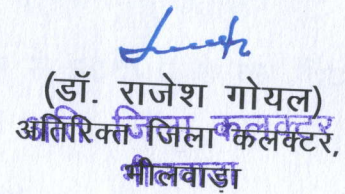 (डॉ. राजेश गोयल)
अतिरिक्त जिला कलक्टर,
भीलवाड़ा